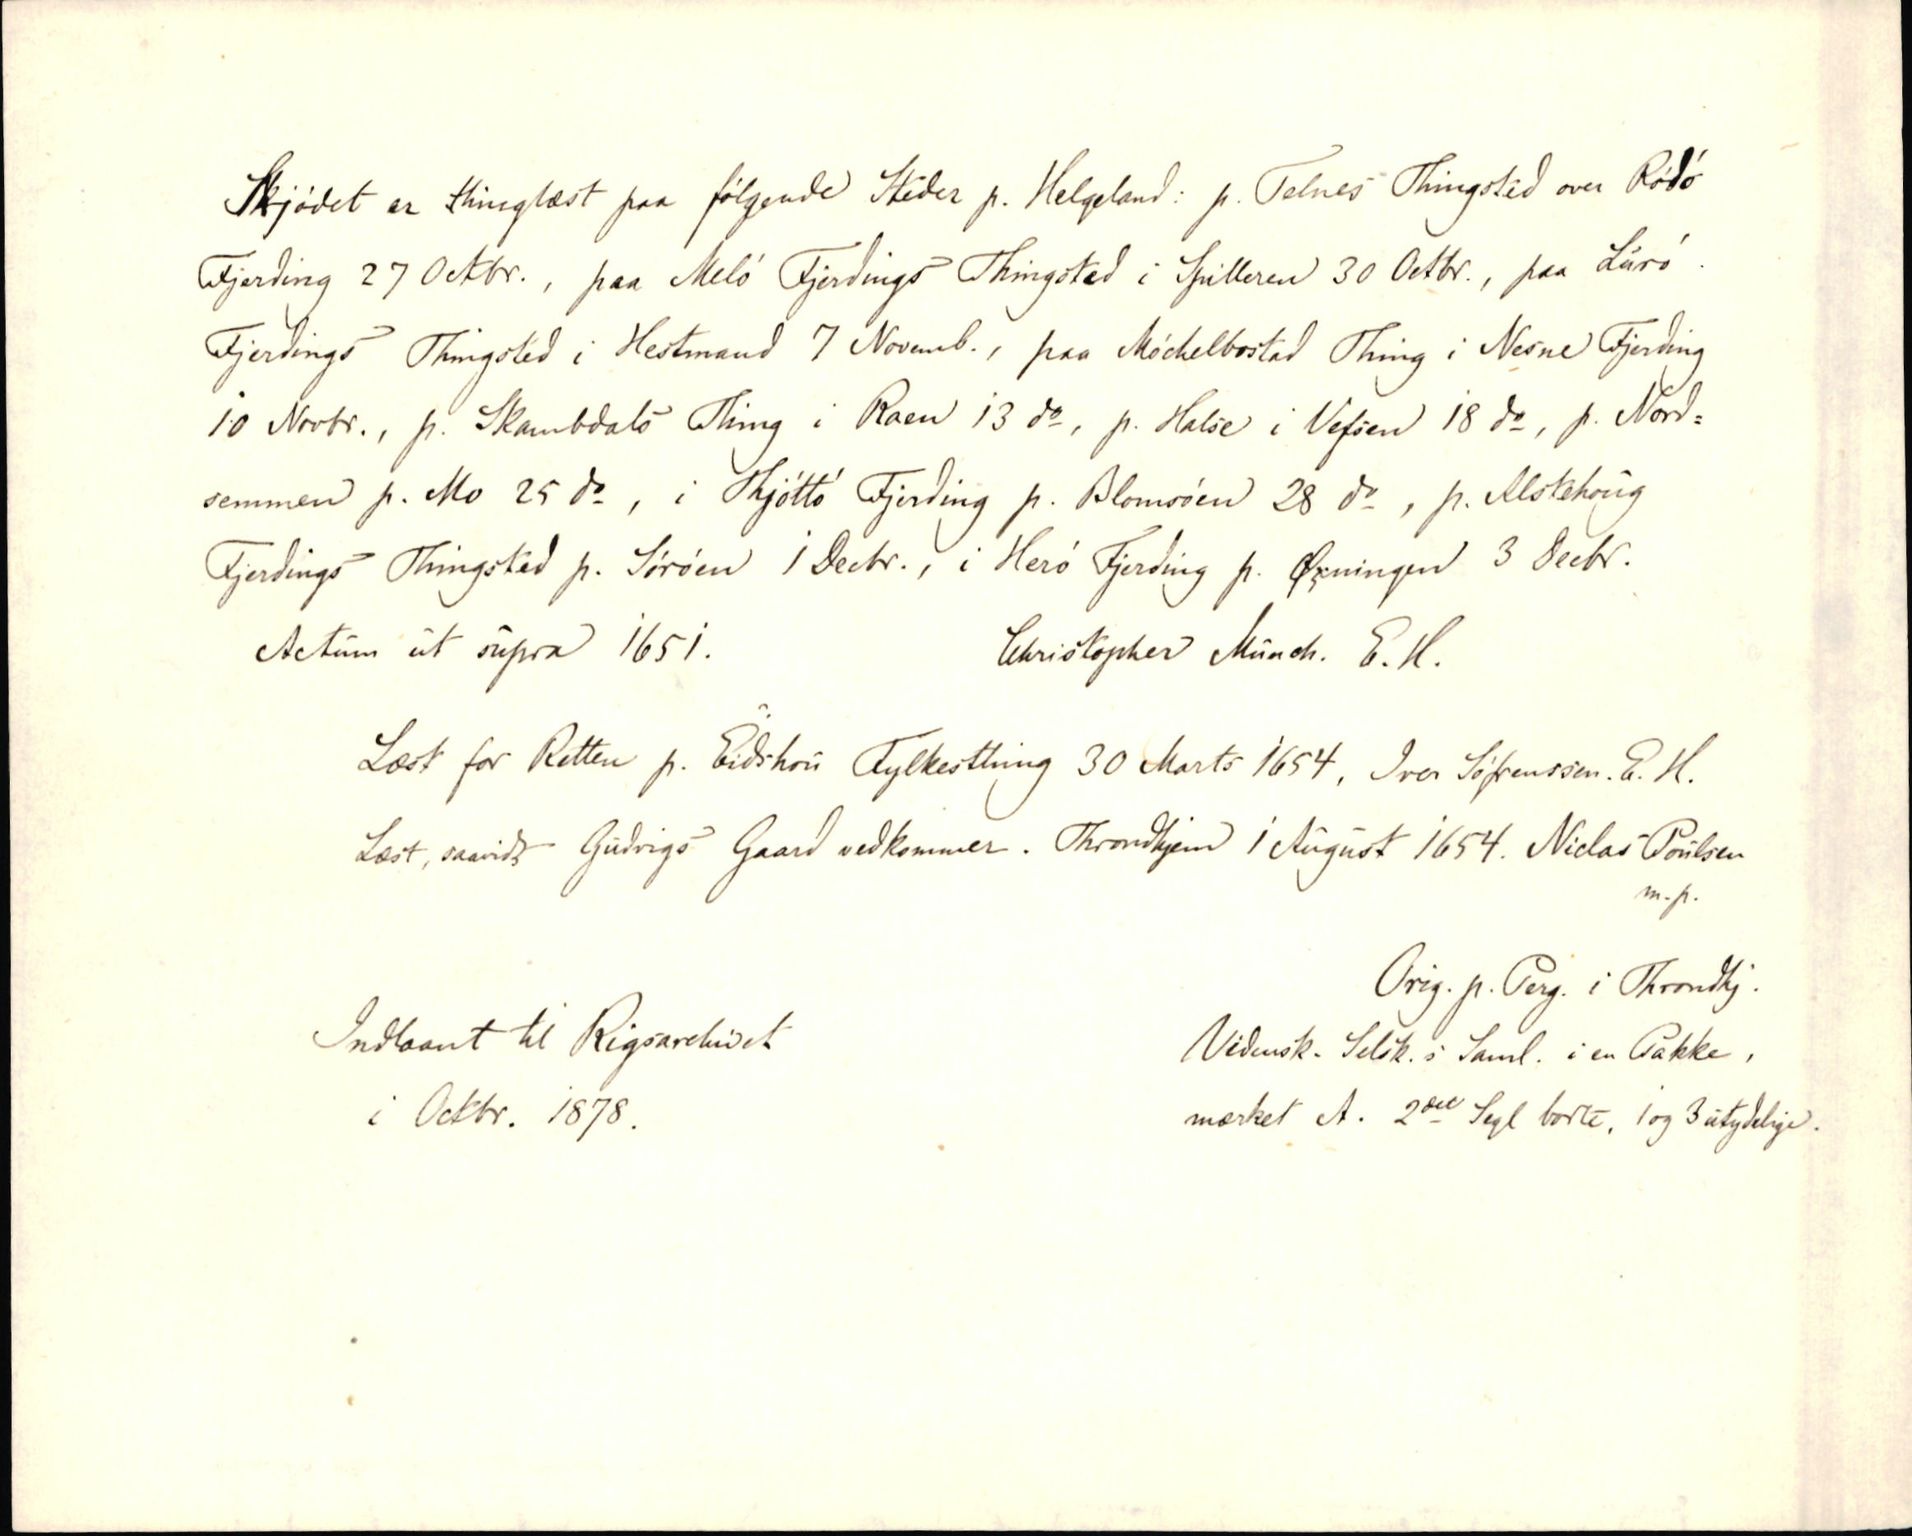 Skjódet er thinglæst paa fólgende Steder p. Helgeland: p. Telnes Thingsted over Ródó
Fjerding 27 Octbr., paa Meló Fjerdings Thingsted i Spilleren 30 Octbr., paa Luró
Fjerdings Thingsted i Hestmand 7 Novemb., paa Móckelbostad Thing i Nesne Fjerding
10 Novbr., p. Skambdals Thing i Raen 13 do, p. Halse i Vefsen 18 do, p. Nord=
semmen p. Mo 25 do, i Thjóttó Fjerding p. Blomsóen 28 do, p. Alstehoug
Fjerdings Thingsted p. Søróen 1 Decbr., i Heró Fjerding p. Øxningen 3 Decbr.
Actum ut supra 1651. Christopher Munch. E. H.
Læst for Retten p. Eidshou Fylkesthing 30 Marts 1654, Iver Sófrenssen. E. H.
Læst, saavidt Gudvigs Gaard vedkommer. Throndhjem 1 August 1654. Niclas Poulsen
m. p.
Orig. p. Perg. i Throndhj.
Vidensk. Selsk.s Saml. i en Pakke,
mærket A. 2det Segl borte, 1 og 3 utydelige.
Indlaant til Rigsarchivet
i Octbr. 1878.